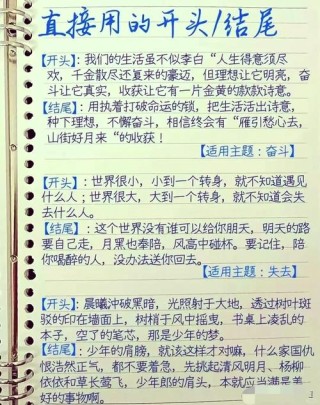 直接用的开头/结尾
【开头】:我们的生活虽不似李白“人生得意须尽
欢，千金散尽还复来的豪迈，但理想让它明亮，奋
斗让它真实，收获让它有一片金黄的款款诗意。
【结尾】:用执着打破命运的锁，把生活活出诗意，
种下理想，不懈奋斗，相信终会有“雁引愁心去，
山街好月来“的收获！
【适用主题：奋斗】
【开头】:世界很小，小到一个转身，就不知道遇见
什么人；世界很大，大到一个转身，就不知道会失
去什么人。
【结尾】：这个世界没有谁可以给你朋天，明天的路
要自己走，月黑也奉陪，风高中碰杯。要记住，陪
你喝醉的人，没办法送你回去。
【适用主题：失去】
【开头】:晨曦沖破黑暗，光照射于大地，透过树叶斑
驳的印在墙面上，树梢于风中摇曳，书桌上凌乱的
本子，空了的笔芯，那是少年的梦。
【结尾：少年的肩膀，就该这样才对嘛，什么家国仇
恨浩然正气，都不要着急，先挑起清风明月、杨柳
依依和草长莺飞，少年郎的肩头，本就应当满是美
好的事物啊。